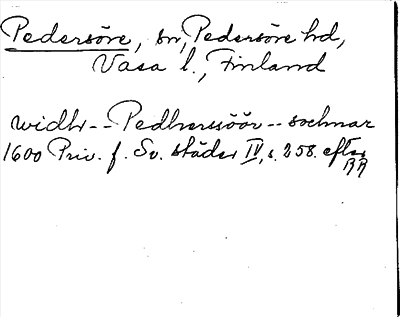 Pedersöre, sn, Pedersöre hd,
Vasa l., Finland
widhr -- Pedherssöör -- sochnar
1600 Priv. f. Sv. städer IV, s. 258. efter
RA